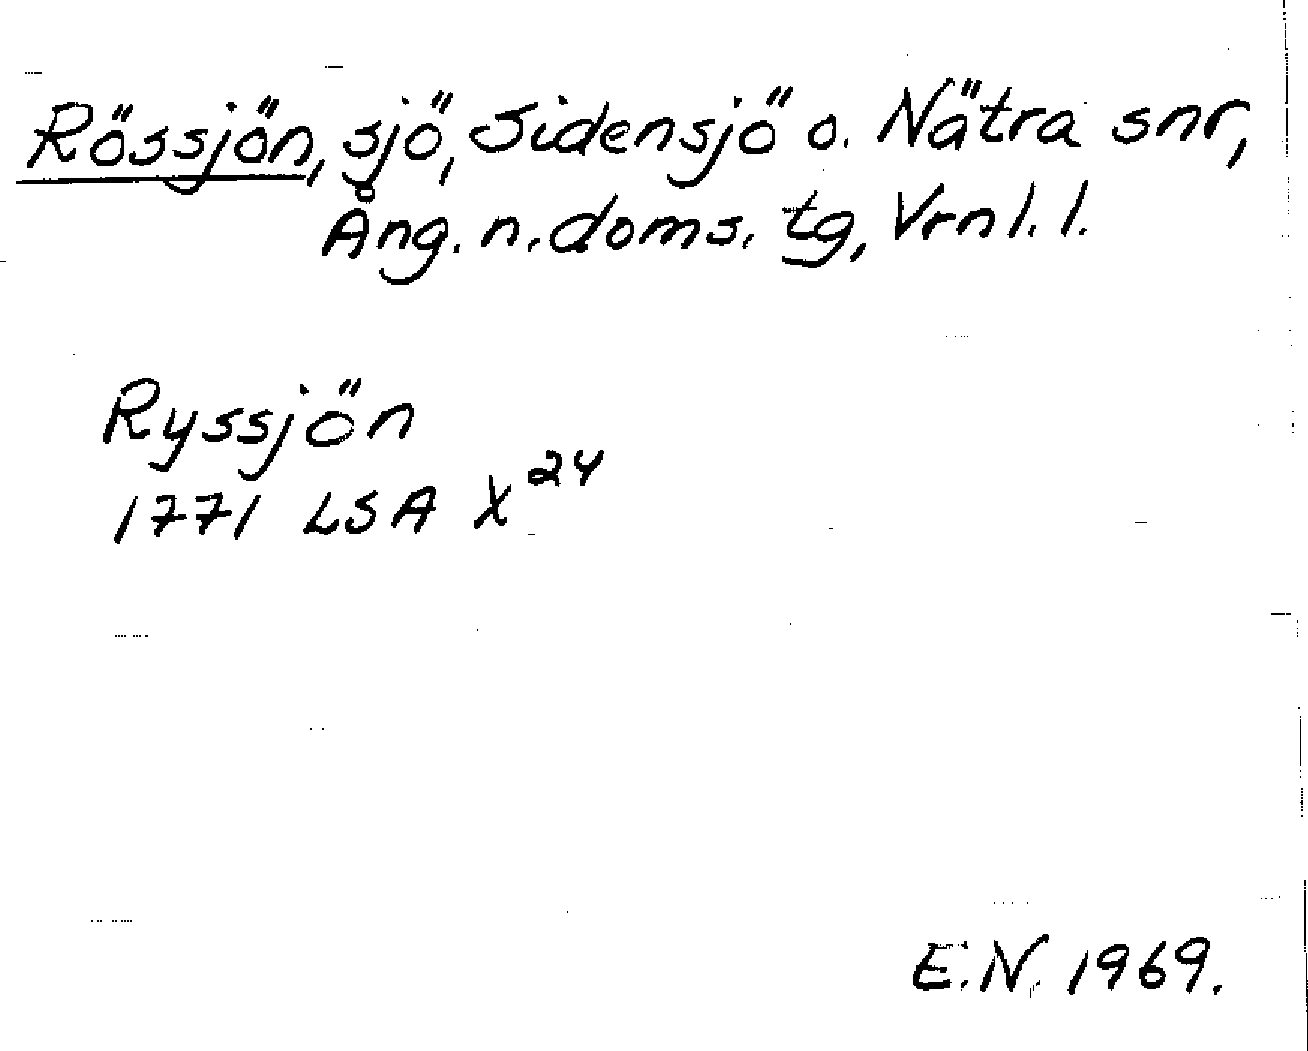 Rössjön, sjö, Sidensjö o. Nätra snr,
Ång. n. doms. tg, Vrnl. l.
Ryssjön
1771 LSA X24
E.N. 1969.